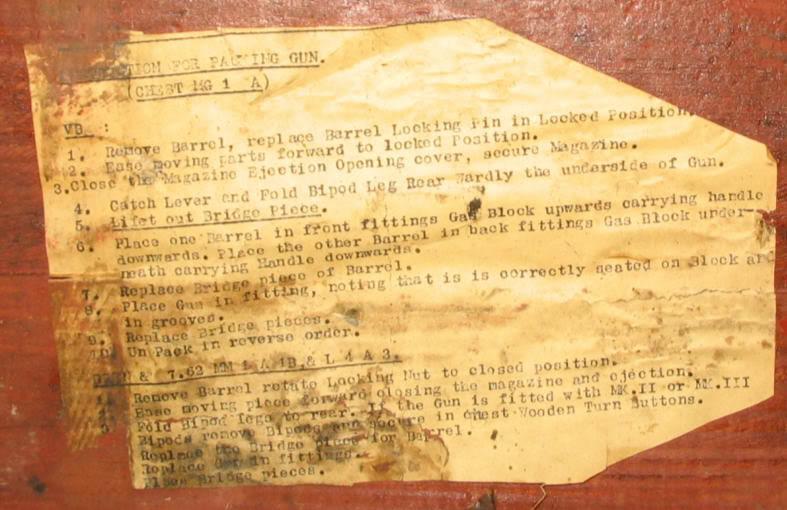 TION FOR PACKING GUN.
(CHEST MG 1 A)
VB :
1. Remove Barrel, replace Barrel Locking Pin in Locked Position.
2. Ease moving parts forward to locked Position.
3.Close the Magazine Ejection Opening cover, secure Magazine.
4. Catch Lever and Fold Bipod Leg Rear Wardly the underside of Gun.
5. Lifet out Bridge Piece.
6. Place one Barrel in front fittings Gas Block upwards carrying handle
downwards. Place the other Barrel in back fittings Gas Block under-
neath carrying Handle downwards.
7. Replace Bridge piece of Barrel.
8. Place Gun in fitting, noting that is is correctly seated on Block and
in grooves.
9. Replace Bridge pieces.
10. Un Pack in reverse order.
& 7.62 MM 1 A 1B & L 4 A 3.
1. Remove Barrel rotate Locking Nut to closed position.
2. Ease moving piece forward closing the magazine and ejection.
3. Fold Bipod legs to rear. If the Gun is fitted with MK.II or MK.III
Bipods remove Bipods and secure in Chest Wooden Turn Buttons.
Replace the Bridge piece for Barrel.
Replace Gun in fittings.
Place Bridge pieces.